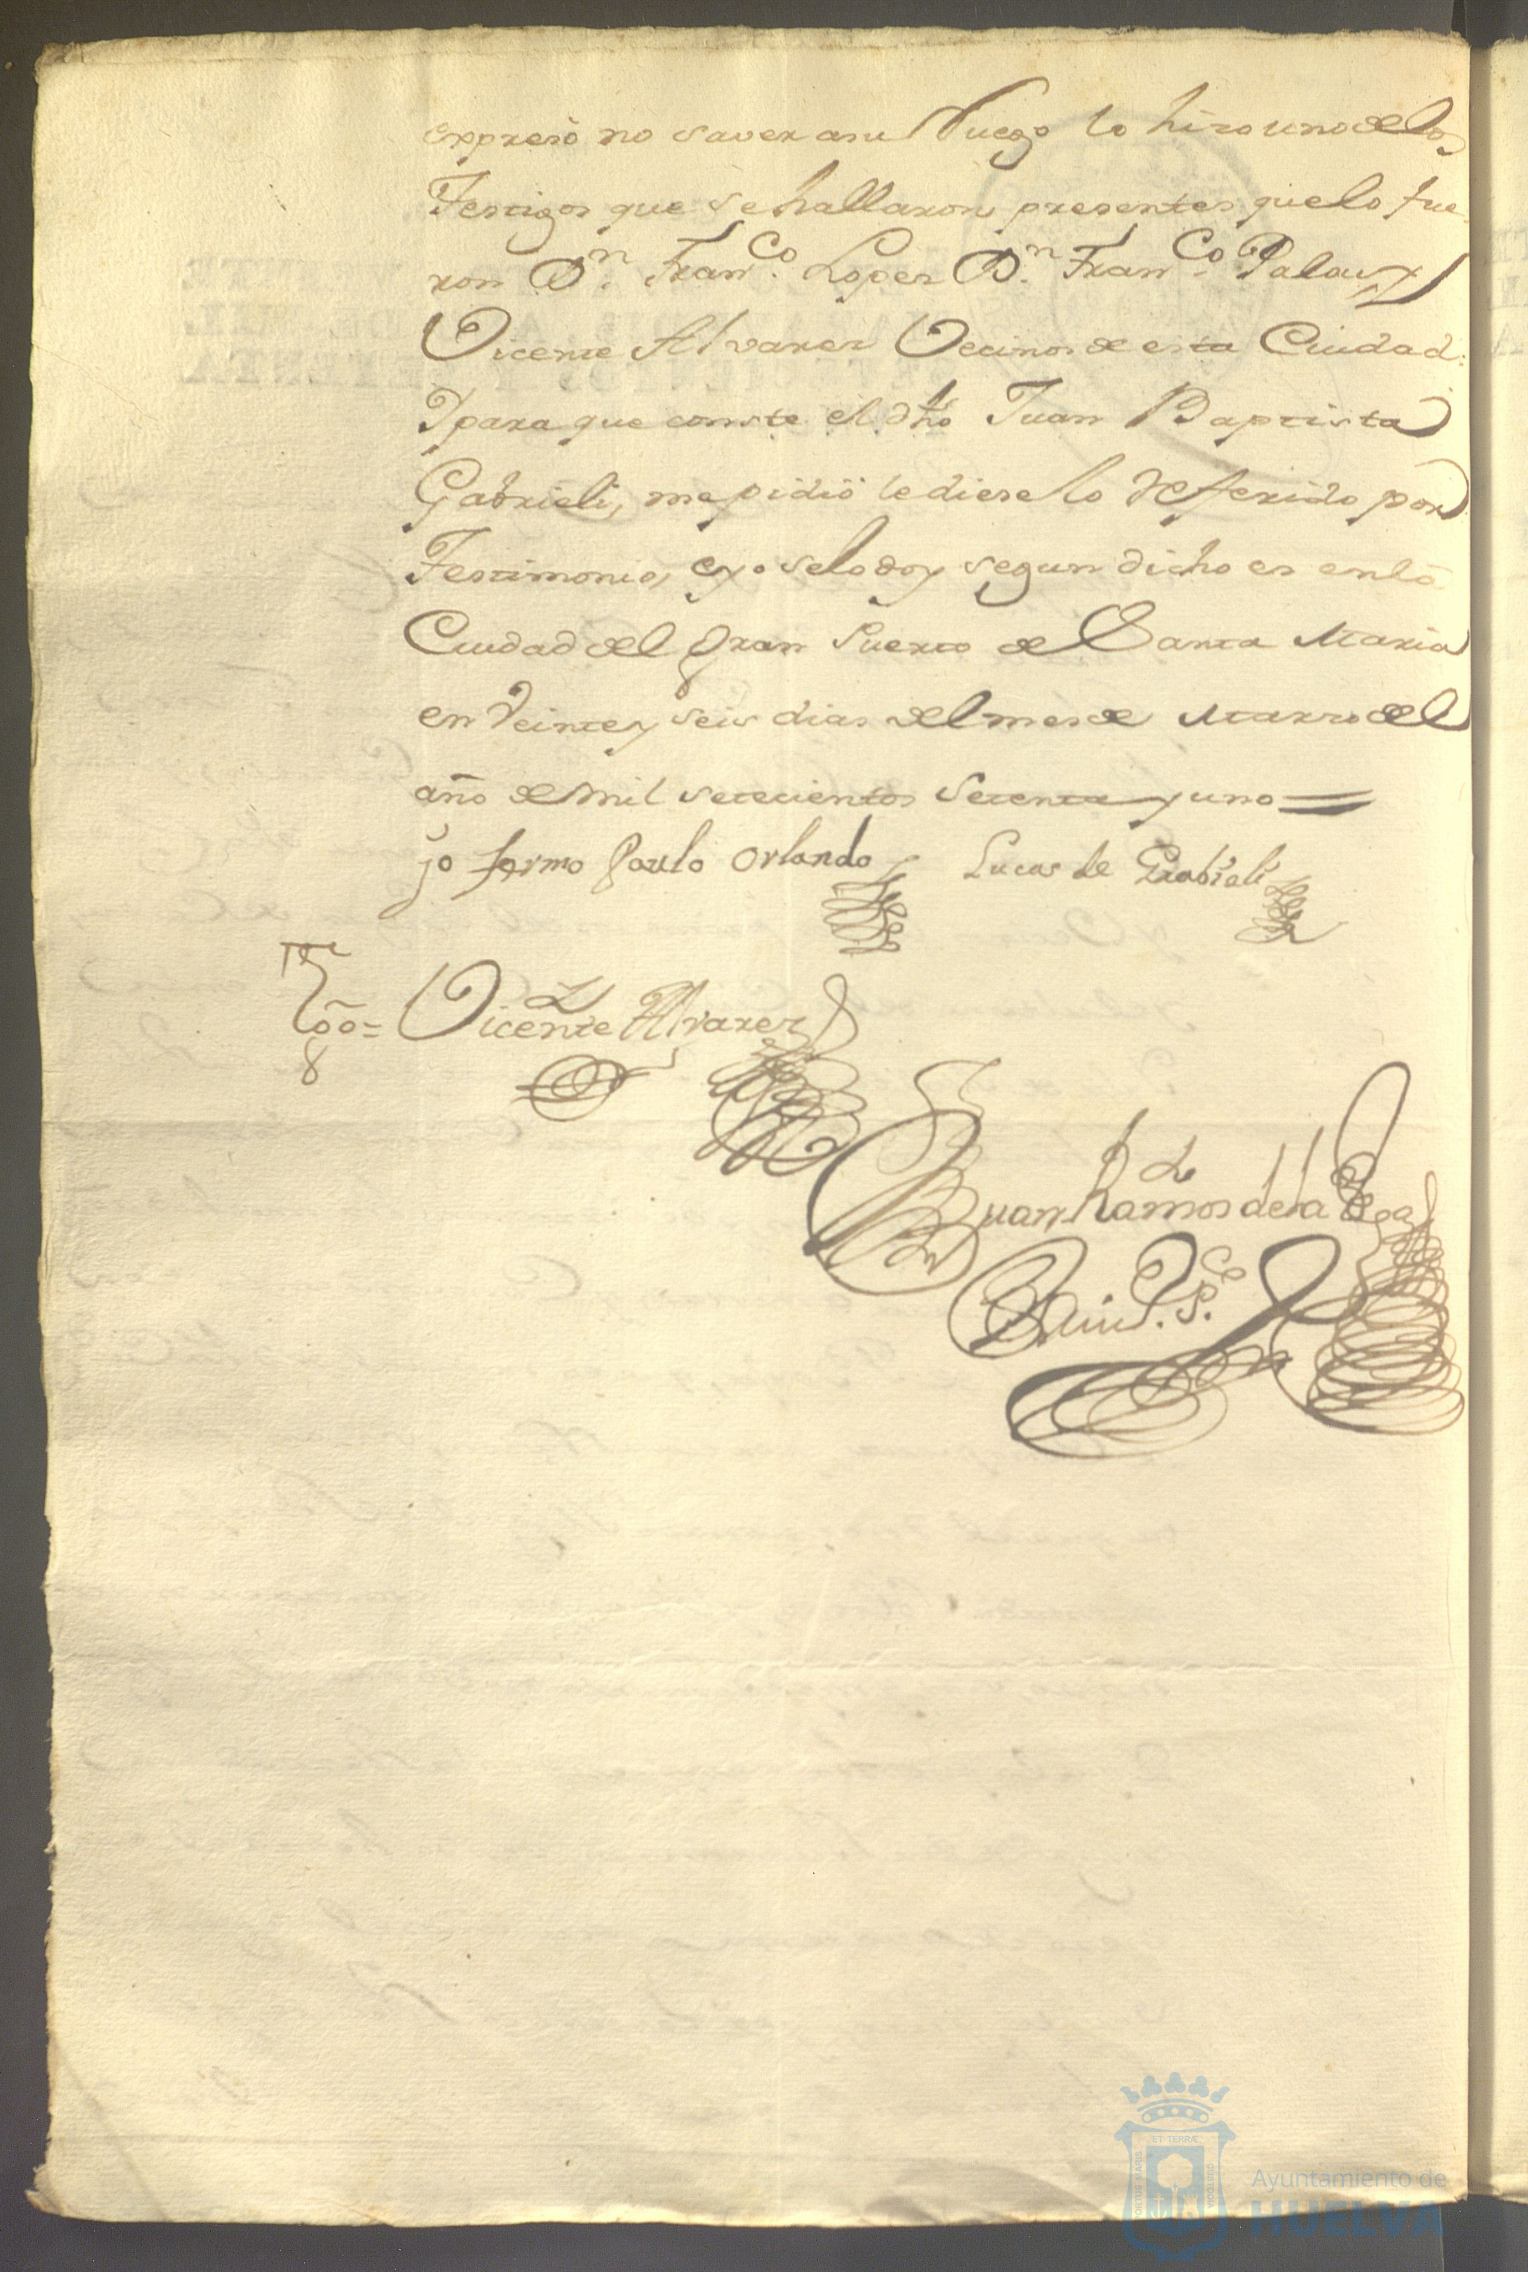 expresó no saver a su Ruego lo hizo uno de los
Testigos que se hallaron presentes que lo fue
ron Dn. Franco. Lopez Dn. Franco. Palau y
Vicente Alvarez Vecinos de esta Ciudad:
Y para que conste el dho Juan Baptista
Gabrieli, me pidió le diese lo Referido por
Testimonio, e yo selo doy segun dicho es en la
Ciudad del Gran Puerto de Santa Maria
en Veinte y seis dias del mes de Marzo del
año de mil setecientos setenta y uno =
jo fermo Paulo Orlando Lucas de Grabieli
Tgo = Vicente Alvarez
Juan Ramos de la Vega
ET TERRÆ
PORTUS MARIS
CUSTODIA
Ayuntamiento de
HUELVA